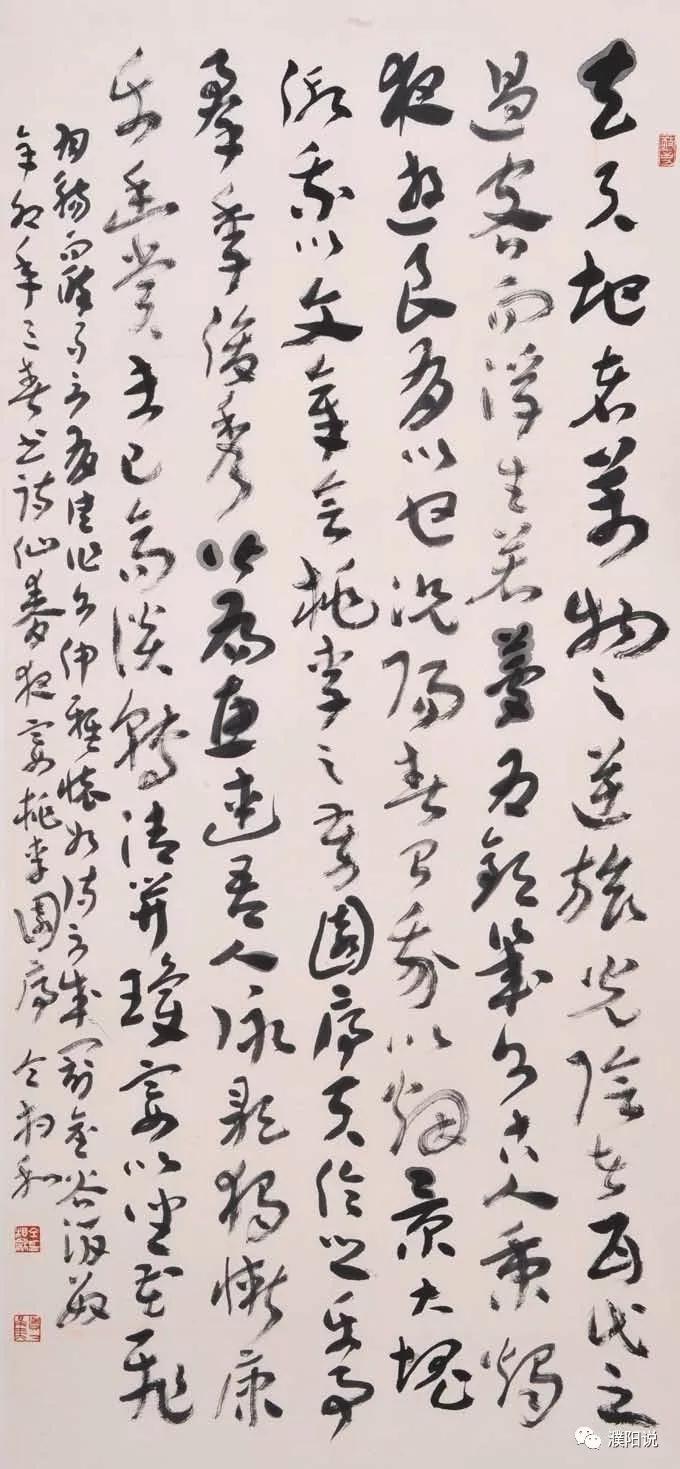 夫天地者萬物之逆旅光陰者百代之
過客而浮生若夢為歡幾何古人秉燭
夜遊良有以也況陽春召我以煙景大塊
假我以文章會桃李之芳園序天倫之樂事
羣季俊秀以為惠連吾人詠歌獨慚康
樂幽賞未已高談轉清開瓊宴以坐花飛
羽觴而醉月不有佳作何伸雅懷如詩不成罰金谷酒數
辛卯年三春書詩仙春夜宴桃李園序 仝相和
濮阳说